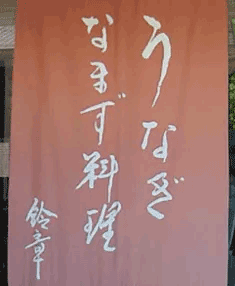 うなぎ
なまず料理
鈴章